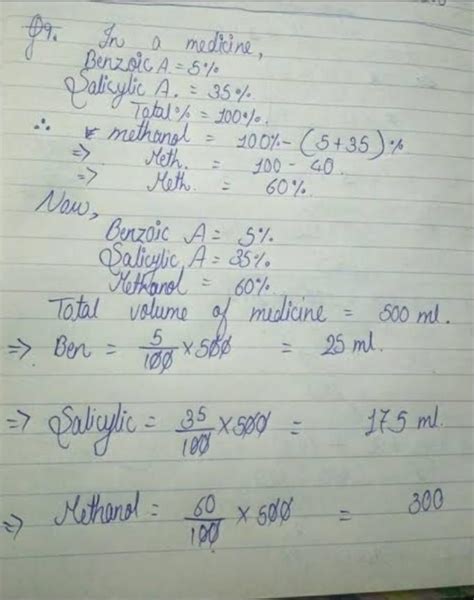 Q9. In a medicine,
Benzoic A. = 5%
Salicylic A. = 35%.
Total % = 100%.
∴ methanol = 100% - (5+35)%
=> Meth. = 100 - 40.
=> Meth. = 60%.
Now,
Benzoic A = 5%
Salicylic A = 35%
Methanol = 60%
Total volume of medicine = 500 ml.
=> Ben = 5/100 × 500 = 25 ml.
=> Salicylic = 35/100 × 500 = 175 ml.
=> Methanol = 60/100 × 500 = 300